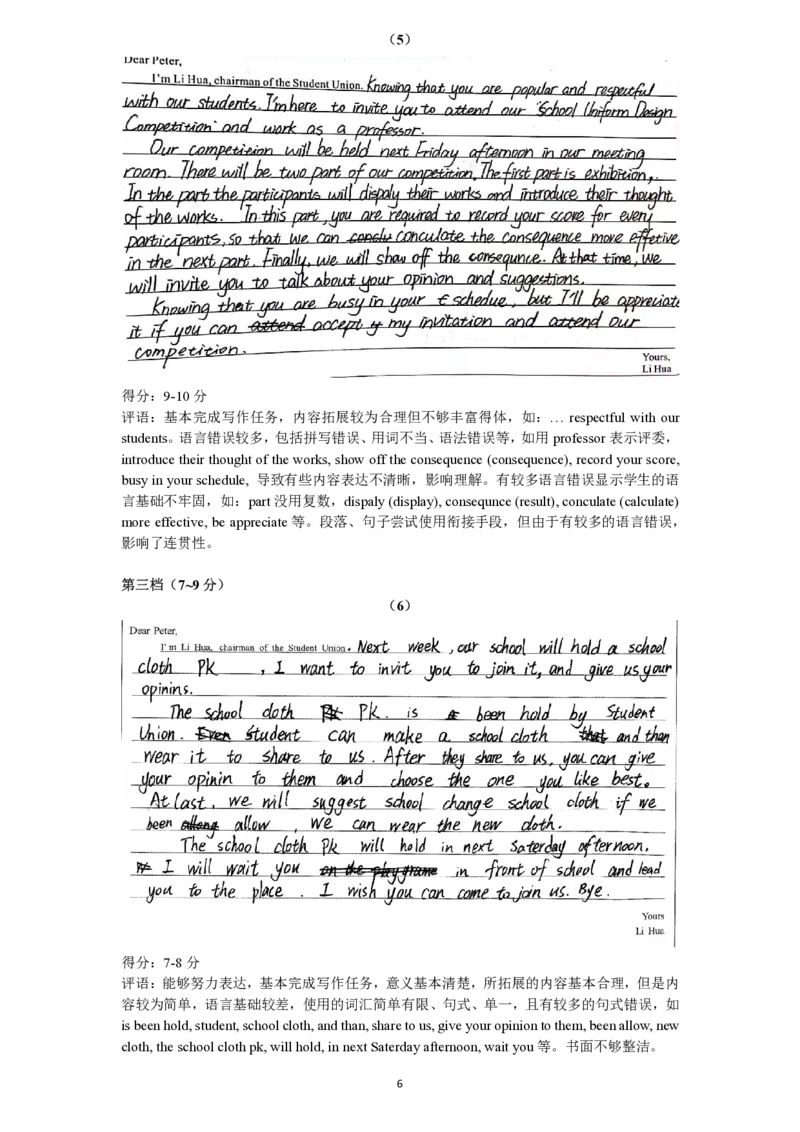 （5）
Dear Peter,
I'm Li Hua, chairman of the Student Union. Knowing that you are popular and respectful
with our students. I'm here to invite you to attend our "School Uniform Design
Competition" and work as a professor.
Our competieion will be held next Friday afternoon in our meeting
room. There will be two part of our competition, The first part is exhibition,.
In the part the participants will dispaly their works and introduce their thought
of the works. In this part, you are required to record your score for every
participants, so that we can conclu conculate the consequence more effetive
in the next part. Finally, we will show off the consequnce. At that time, we
will invite you to talk about your opinion and suggestions.
Knowing that you are busy in your schedue, but I'll be appreciate
it if you can attend accept y my invitation and attend our
competition.
Yours,
Li Hua
得分：9-10 分
评语：基本完成写作任务，内容拓展较为合理但不够丰富得体，如：… respectful with our
students。语言错误较多，包括拼写错误、用词不当、语法错误等，如用 professor 表示评委，
introduce their thought of the works, show off the consequence (consequence), record your score,
busy in your schedule, 导致有些内容表达不清晰，影响理解。有较多语言错误显示学生的语
言基础不牢固，如：part 没用复数，dispaly (display), consequnce (result), conculate (calculate)
more effective, be appreciate 等。段落、句子尝试使用衔接手段，但由于有较多的语言错误，
影响了连贯性。
第三档（7~9 分）
（6）
Dear Peter,
I'm Li Hua, chairman of the Student Union. Next week , our school will hold a school
cloth Pk , I want to invit you to join it, and give us your
opinins.
The school cloth Pk Pk. is a been hold by Student
Union. Even student can make a school cloth that and than
wear it to share to us. After they share to us, you can give
your opinin to them and choose the one you like best.
At last, we will suggest school change school cloth if we
been allow , we can wear the new cloth.
The school cloth Pk will hold in next Saterday afternoon,
I will wait you on the in front of school and lead
you to the place . I wish you can come to join us. Bye.
Yours
Li Hua
得分：7-8 分
评语：能够努力表达，基本完成写作任务，意义基本清楚，所拓展的内容基本合理，但是内
容较为简单，语言基础较差，使用的词汇简单有限、句式、单一，且有较多的句式错误，如
is been hold, student, school cloth, and than, share to us, give your opinion to them, been allow, new
cloth, the school cloth pk, will hold, in next Saterday afternoon, wait you 等。书面不够整洁。
6